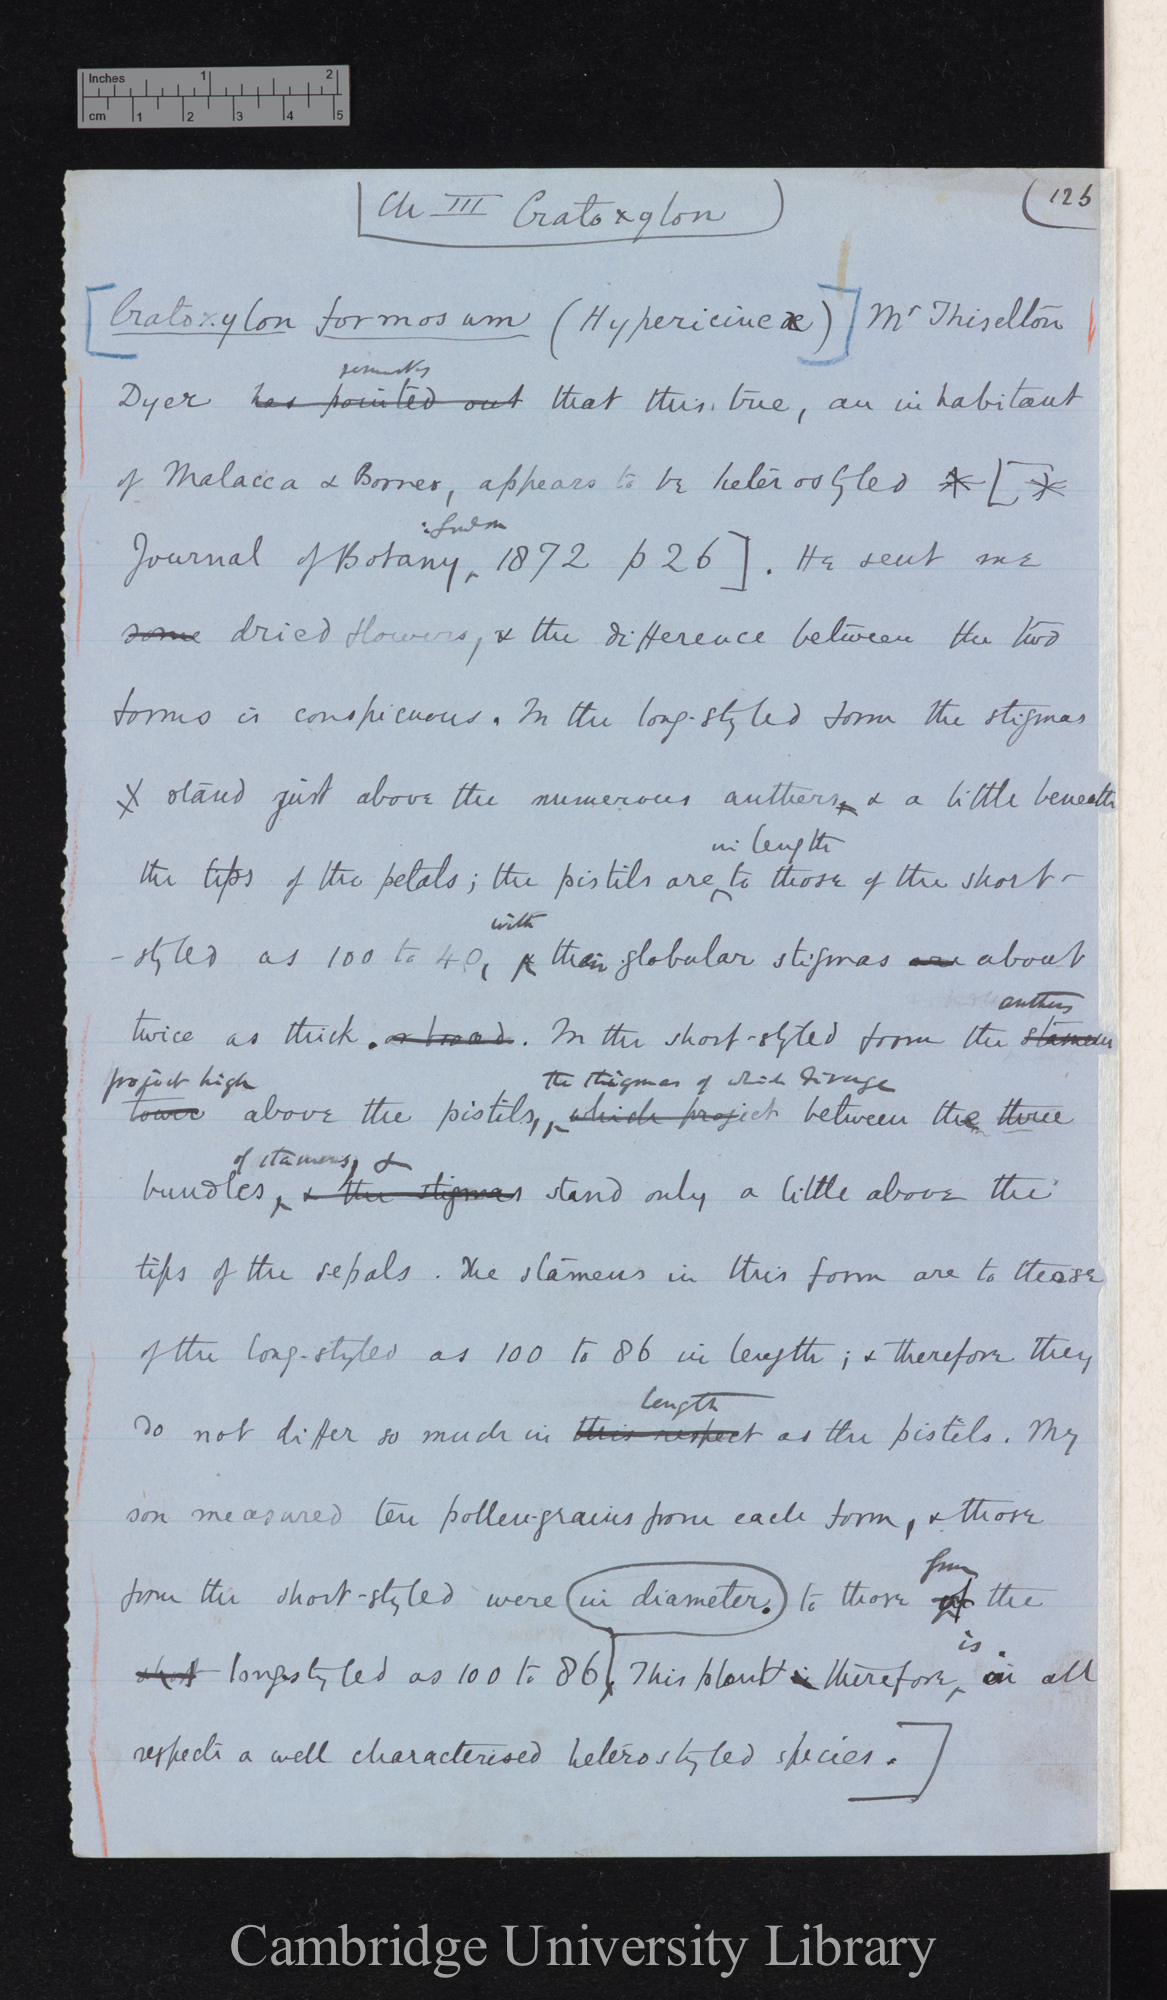 Inches 1 2
cm 1 2 3 4 5
Ch III Cratoxylon
125
[Cratoxylon formosum (Hypericineæ)] Mr Thiselton
remarks
Dyer has pointed out that this tree, an inhabitant
of Malacca & Borneo, appears to be heterostyled * [*
London
Journal of Botany, 1872 p 26]. He sent me
some dried flowers, & the difference between the two
forms is conspicuous. In the long-styled form the stigmas
stand just above the numerous anthers, & a little beneath
in length
the tips of the petals; the pistils are to those of the short-
with
-styled as 100 to 40, & their globular stigmas are about
anthers
twice as thick. as broad. In the short-styled form the stamens
project high the stigmas of which diverge
tower above the pistils, which project between the three
of stamens, &
bundles, & the stigmas stand only a little above the
tips of the sepals. The stamens in this form are to those
of the long-styled as 100 to 86 in length; & therefore they
length
do not differ so much in this respect as the pistils. My
son measured ten pollen-grains from each form, & those
from
from the short-styled were in diameter. to those of the
is
short long-styled as 100 to 86, This plant is therefore, in all
respects a well characterised heterostyled species.]
Cambridge University Library